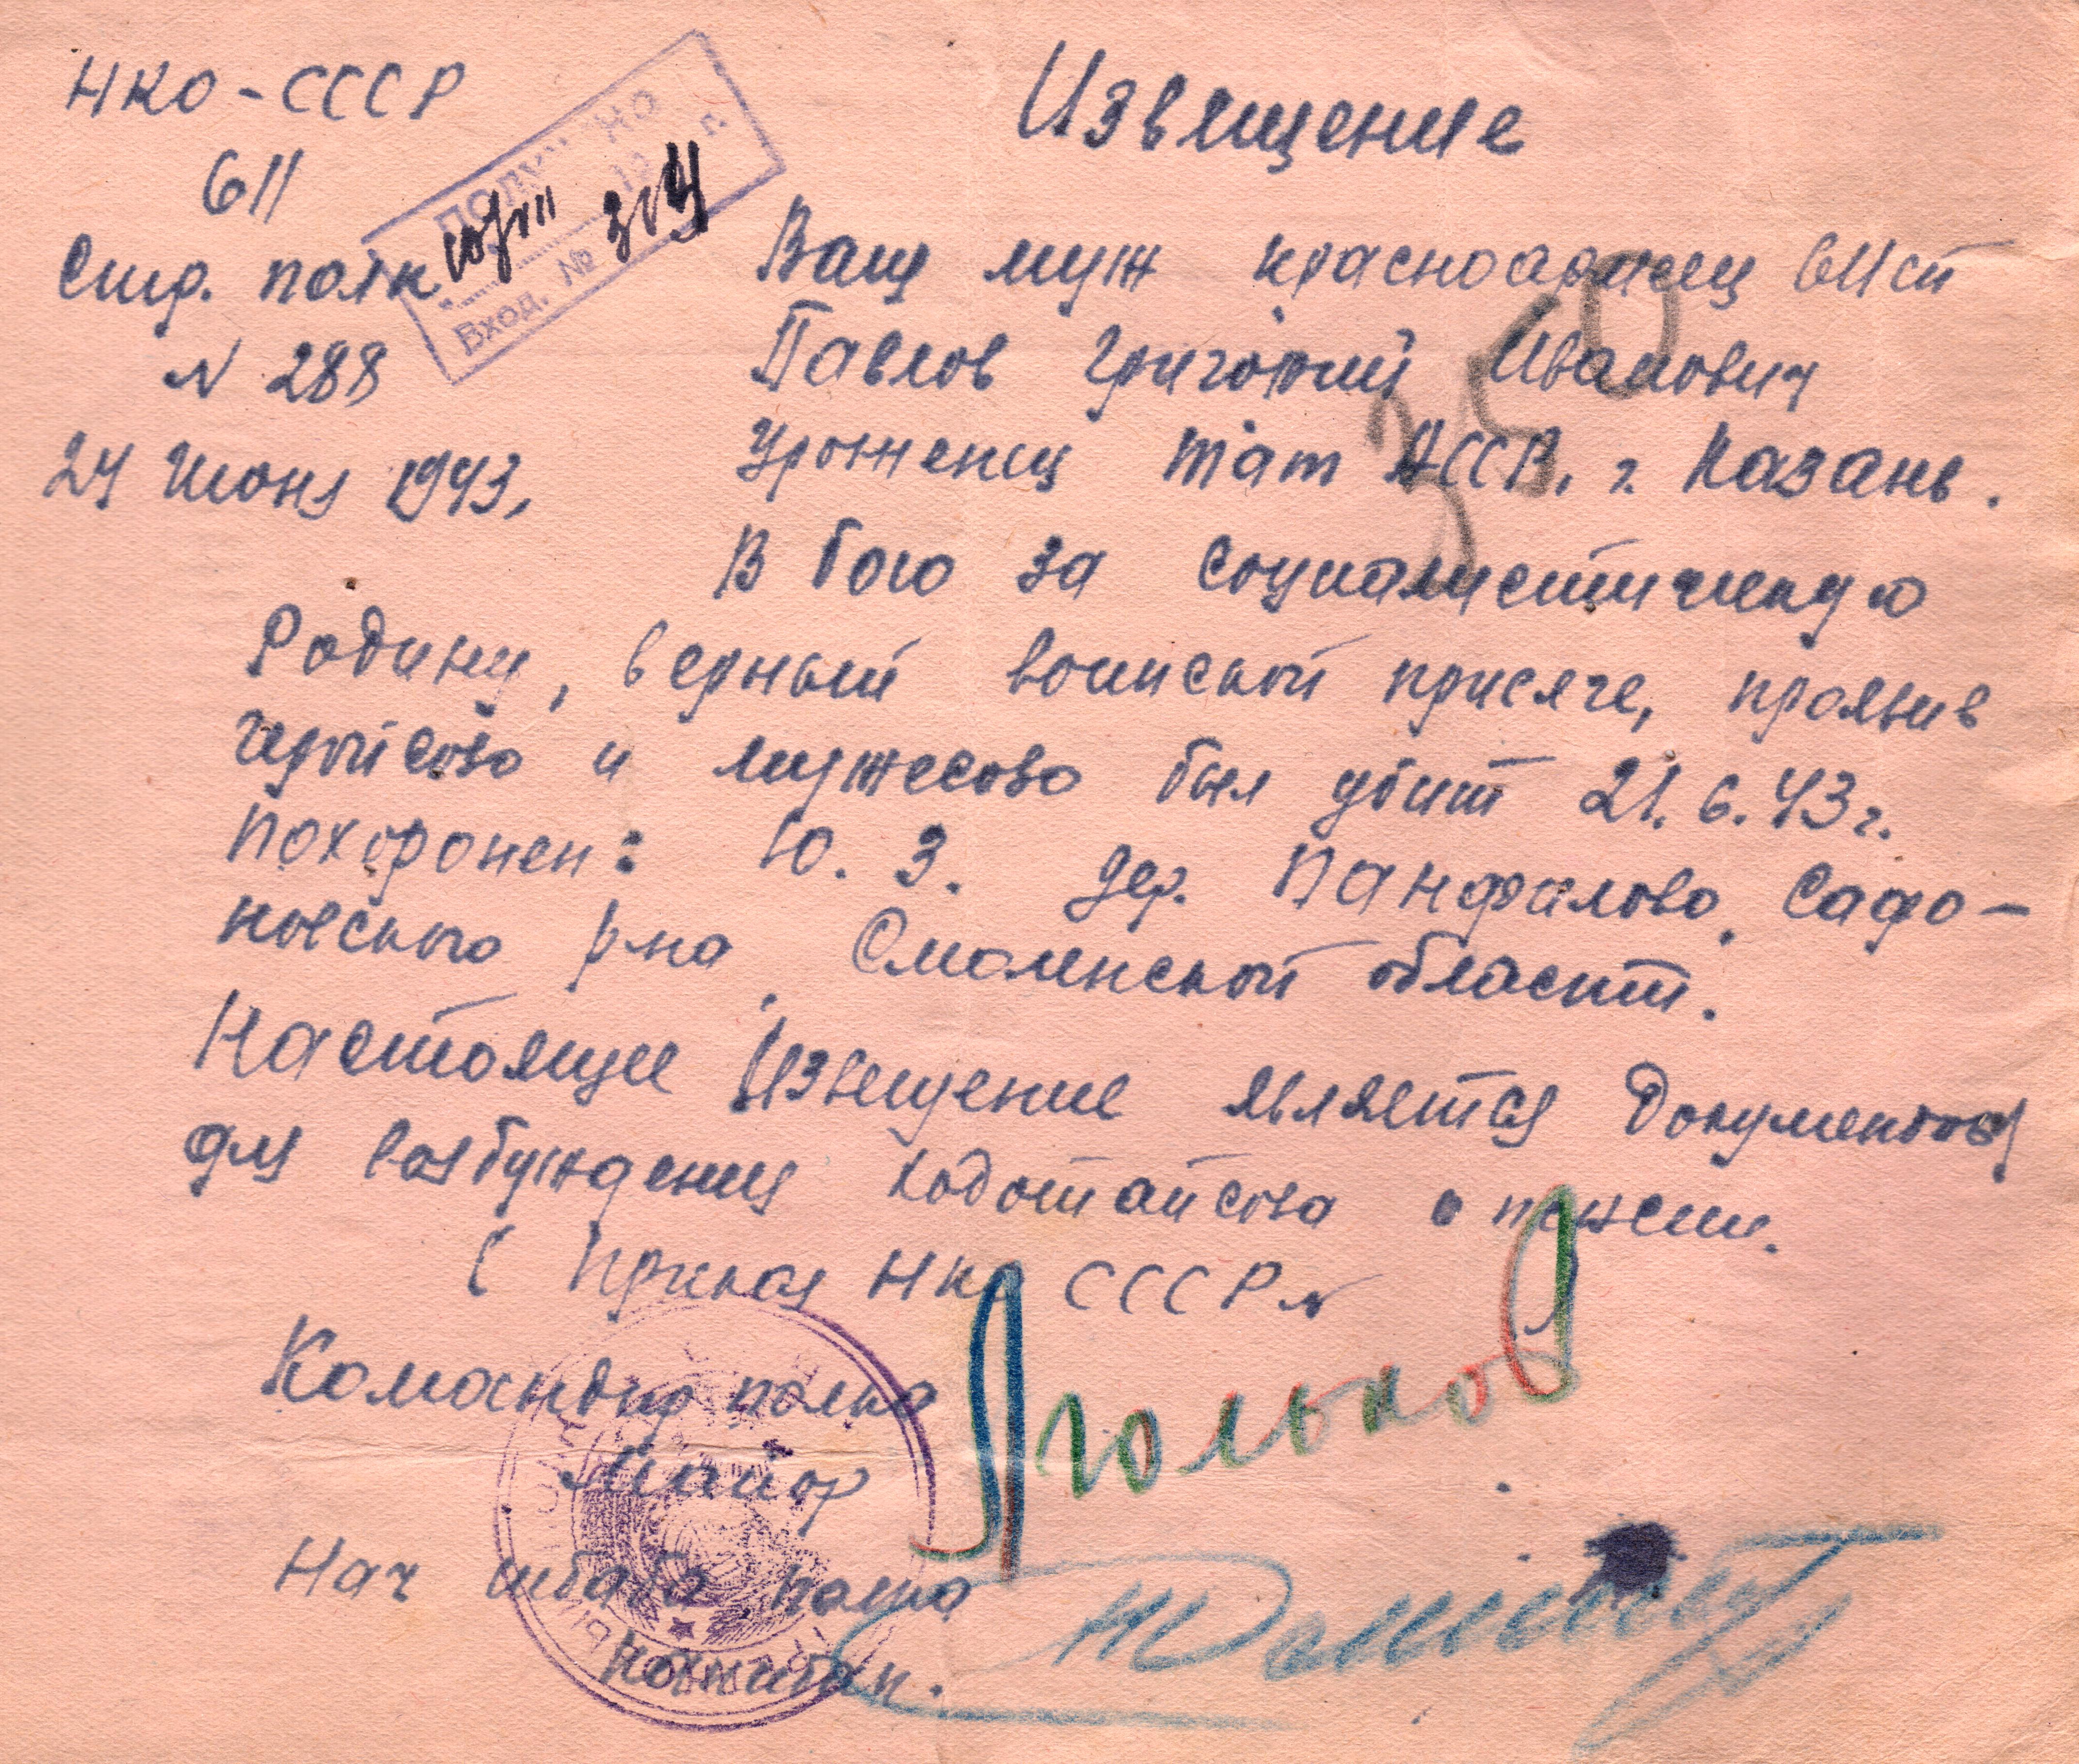 НКО-СССР
611
Стр. полк
N 288
24 Июня 1943,
ПОЛУЧЕНО
19 г.
Вход. № 304
Извещение
Ваш муж красноармеец 611 сп
Павлов Григорий Иванович
Уроженец Тат АССР, г. Казань.
В бою за социалистическую
Родину, верный воинской присяге, проявив
геройство и мужество был убит 21.6.43г.
Похоронен: Ю. З. дер. Панфилово, Сафо-
новского р-на Смоленской области.
Настоящее Извещение является Документом
для возбуждения ходотайства о пенсии.
( Приказ НКО СССР N
Командир полка
Майор
Нач штаба полка
Капитан.